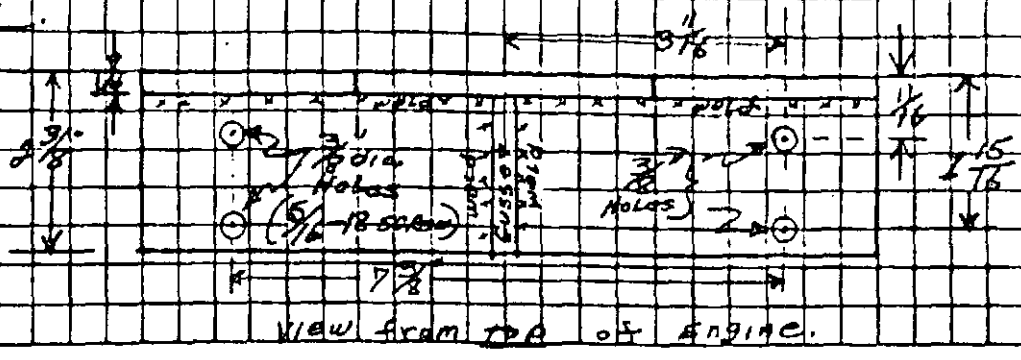 3 11/16
1/4
Weld
Weld
11/16
2 3/8
3/8 dia
Holes
(5/16-18 screw)
Weld
Gusset
Weld
3/8
Holes
1 15/16
7 3/8
View from TOP of Engine.